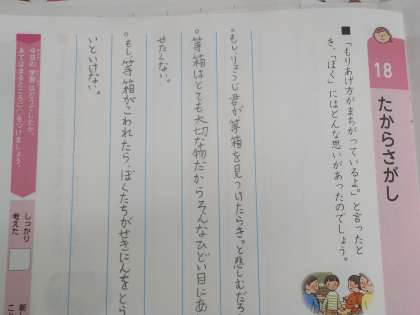 18 たからさがし
■「もりあげ方がまちがっているよ。」と言ったと
き、「ぼく」にはどんな思いがあったのでしょう。
○もし、りょうじ君が筆箱を見つけたらきっと悲しむだろ
○筆箱はとても大切な物だからそんなひどい目にあ
せたくない。
○もし筆箱がこわれたら、ぼくたちがせきにんをとら
いといけない。
今日の学習はどうでしたか。
あてはまるところに○をつけましょう。
しっかり
考えた